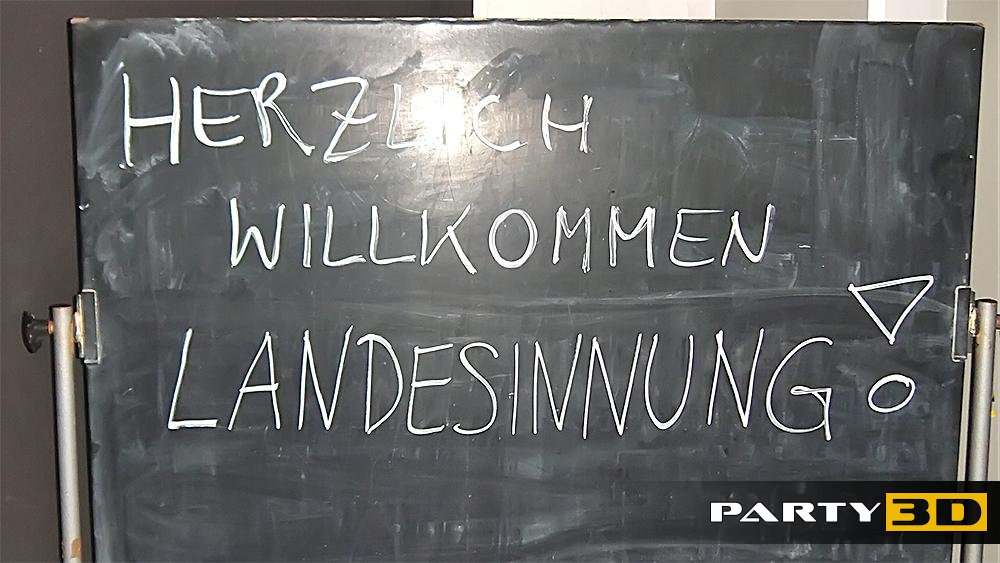 HERZLICH
WILLKOMMEN
LANDESINNUNG!
PARTY3D